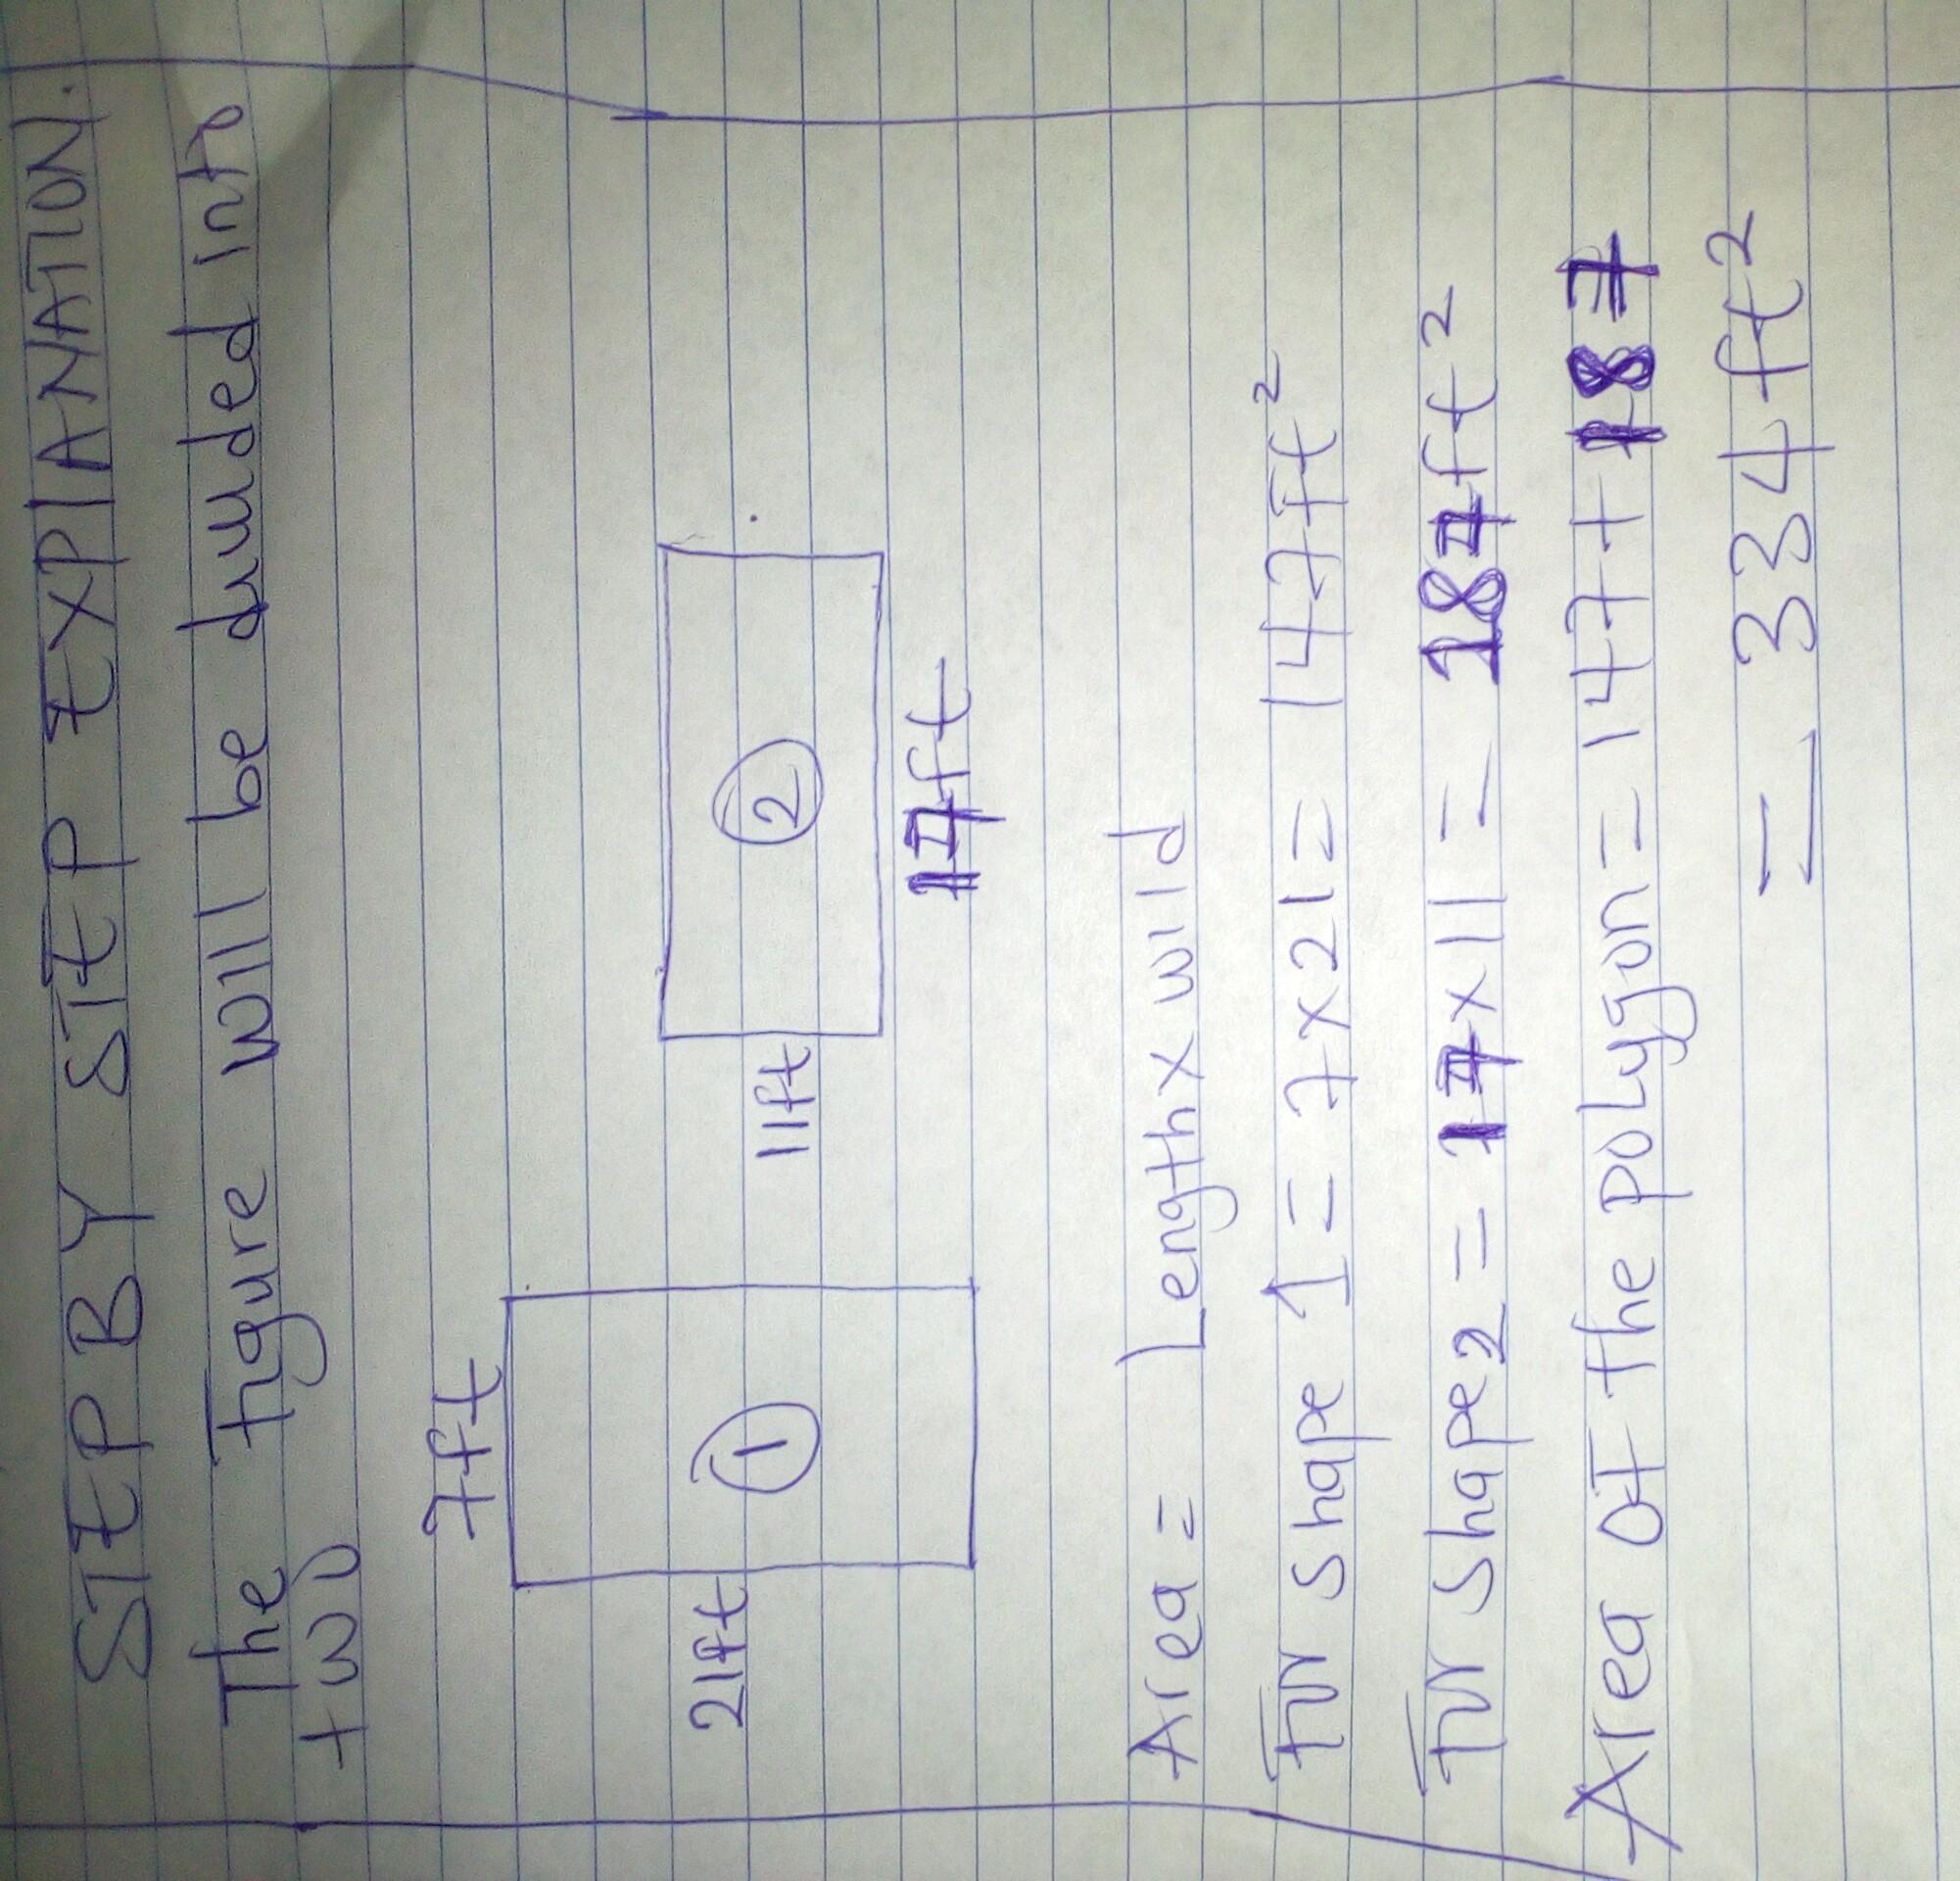 STEP BY STEP EXPLANATION.
The figure will be divided into
two
7ft
21ft
1
11ft
2
17ft
Area = Length x wild
For shape 1 = 7x21 = 147ft²
For shape 2 = 17x11 = 187ft²
Area of the polygon = 147+187
= 334ft²